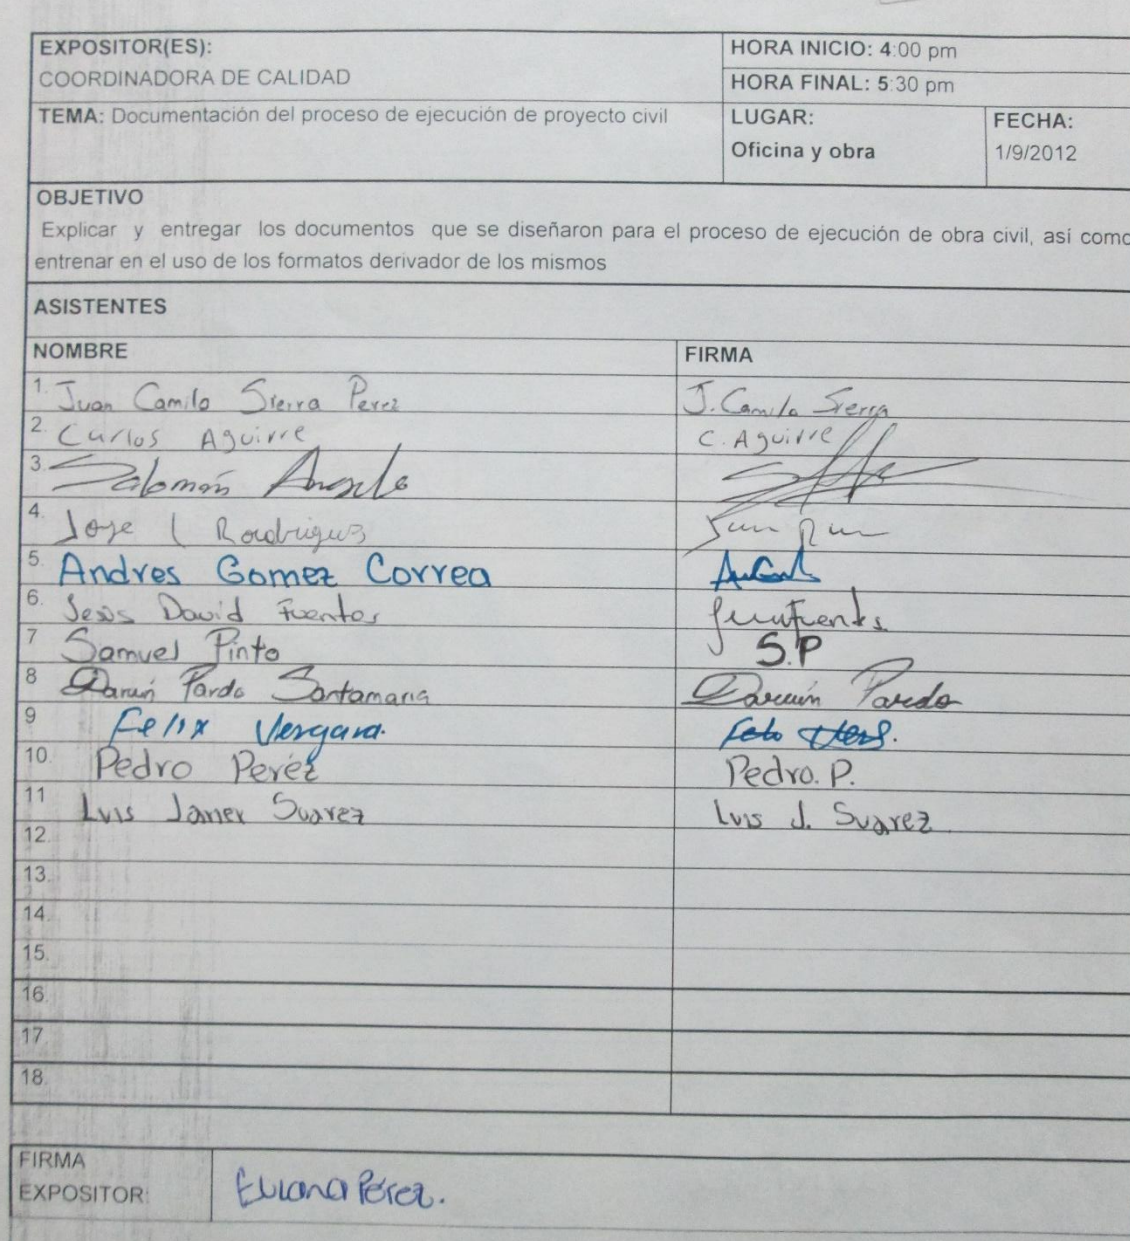 EXPOSITOR(ES):
COORDINADORA DE CALIDAD
HORA INICIO: 4:00 pm
HORA FINAL: 5:30 pm
TEMA: Documentación del proceso de ejecución de proyecto civil
LUGAR:
Oficina y obra
FECHA:
1/9/2012
OBJETIVO
Explicar y entregar los documentos que se diseñaron para el proceso de ejecución de obra civil, así como
entrenar en el uso de los formatos derivador de los mismos
ASISTENTES
NOMBRE FIRMA
1. Juan Camilo Sierra Perez J. Camilo Sierra
2. Carlos Aguirre C. Aguirre
3. Salomón
4. Jose
5. Andres Gomez Correa
6. Jesús David Fuentes
7 Samuel Pinto S.P
8 Pardo Santamaria Pardo
9 Felix Vergara.
10. Pedro Peréz Pedro. P.
11 Luis Suarez Luis J. Suarez
12.
13.
14.
15.
16.
17.
18.
FIRMA
EXPOSITOR:
Eliana Pérez.